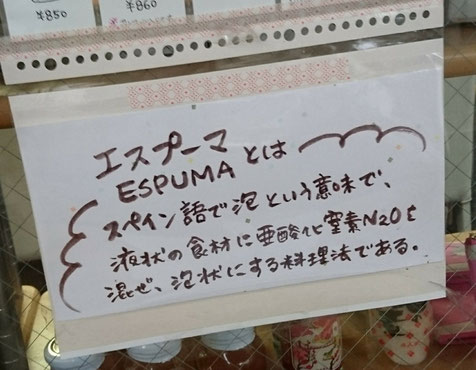 ¥850
¥860
エスプーマ
ESPUMAとは
スペイン語で泡という意味で、
液状の食材に亜酸化窒素N2Oを
混ぜ、泡状にする料理法である。